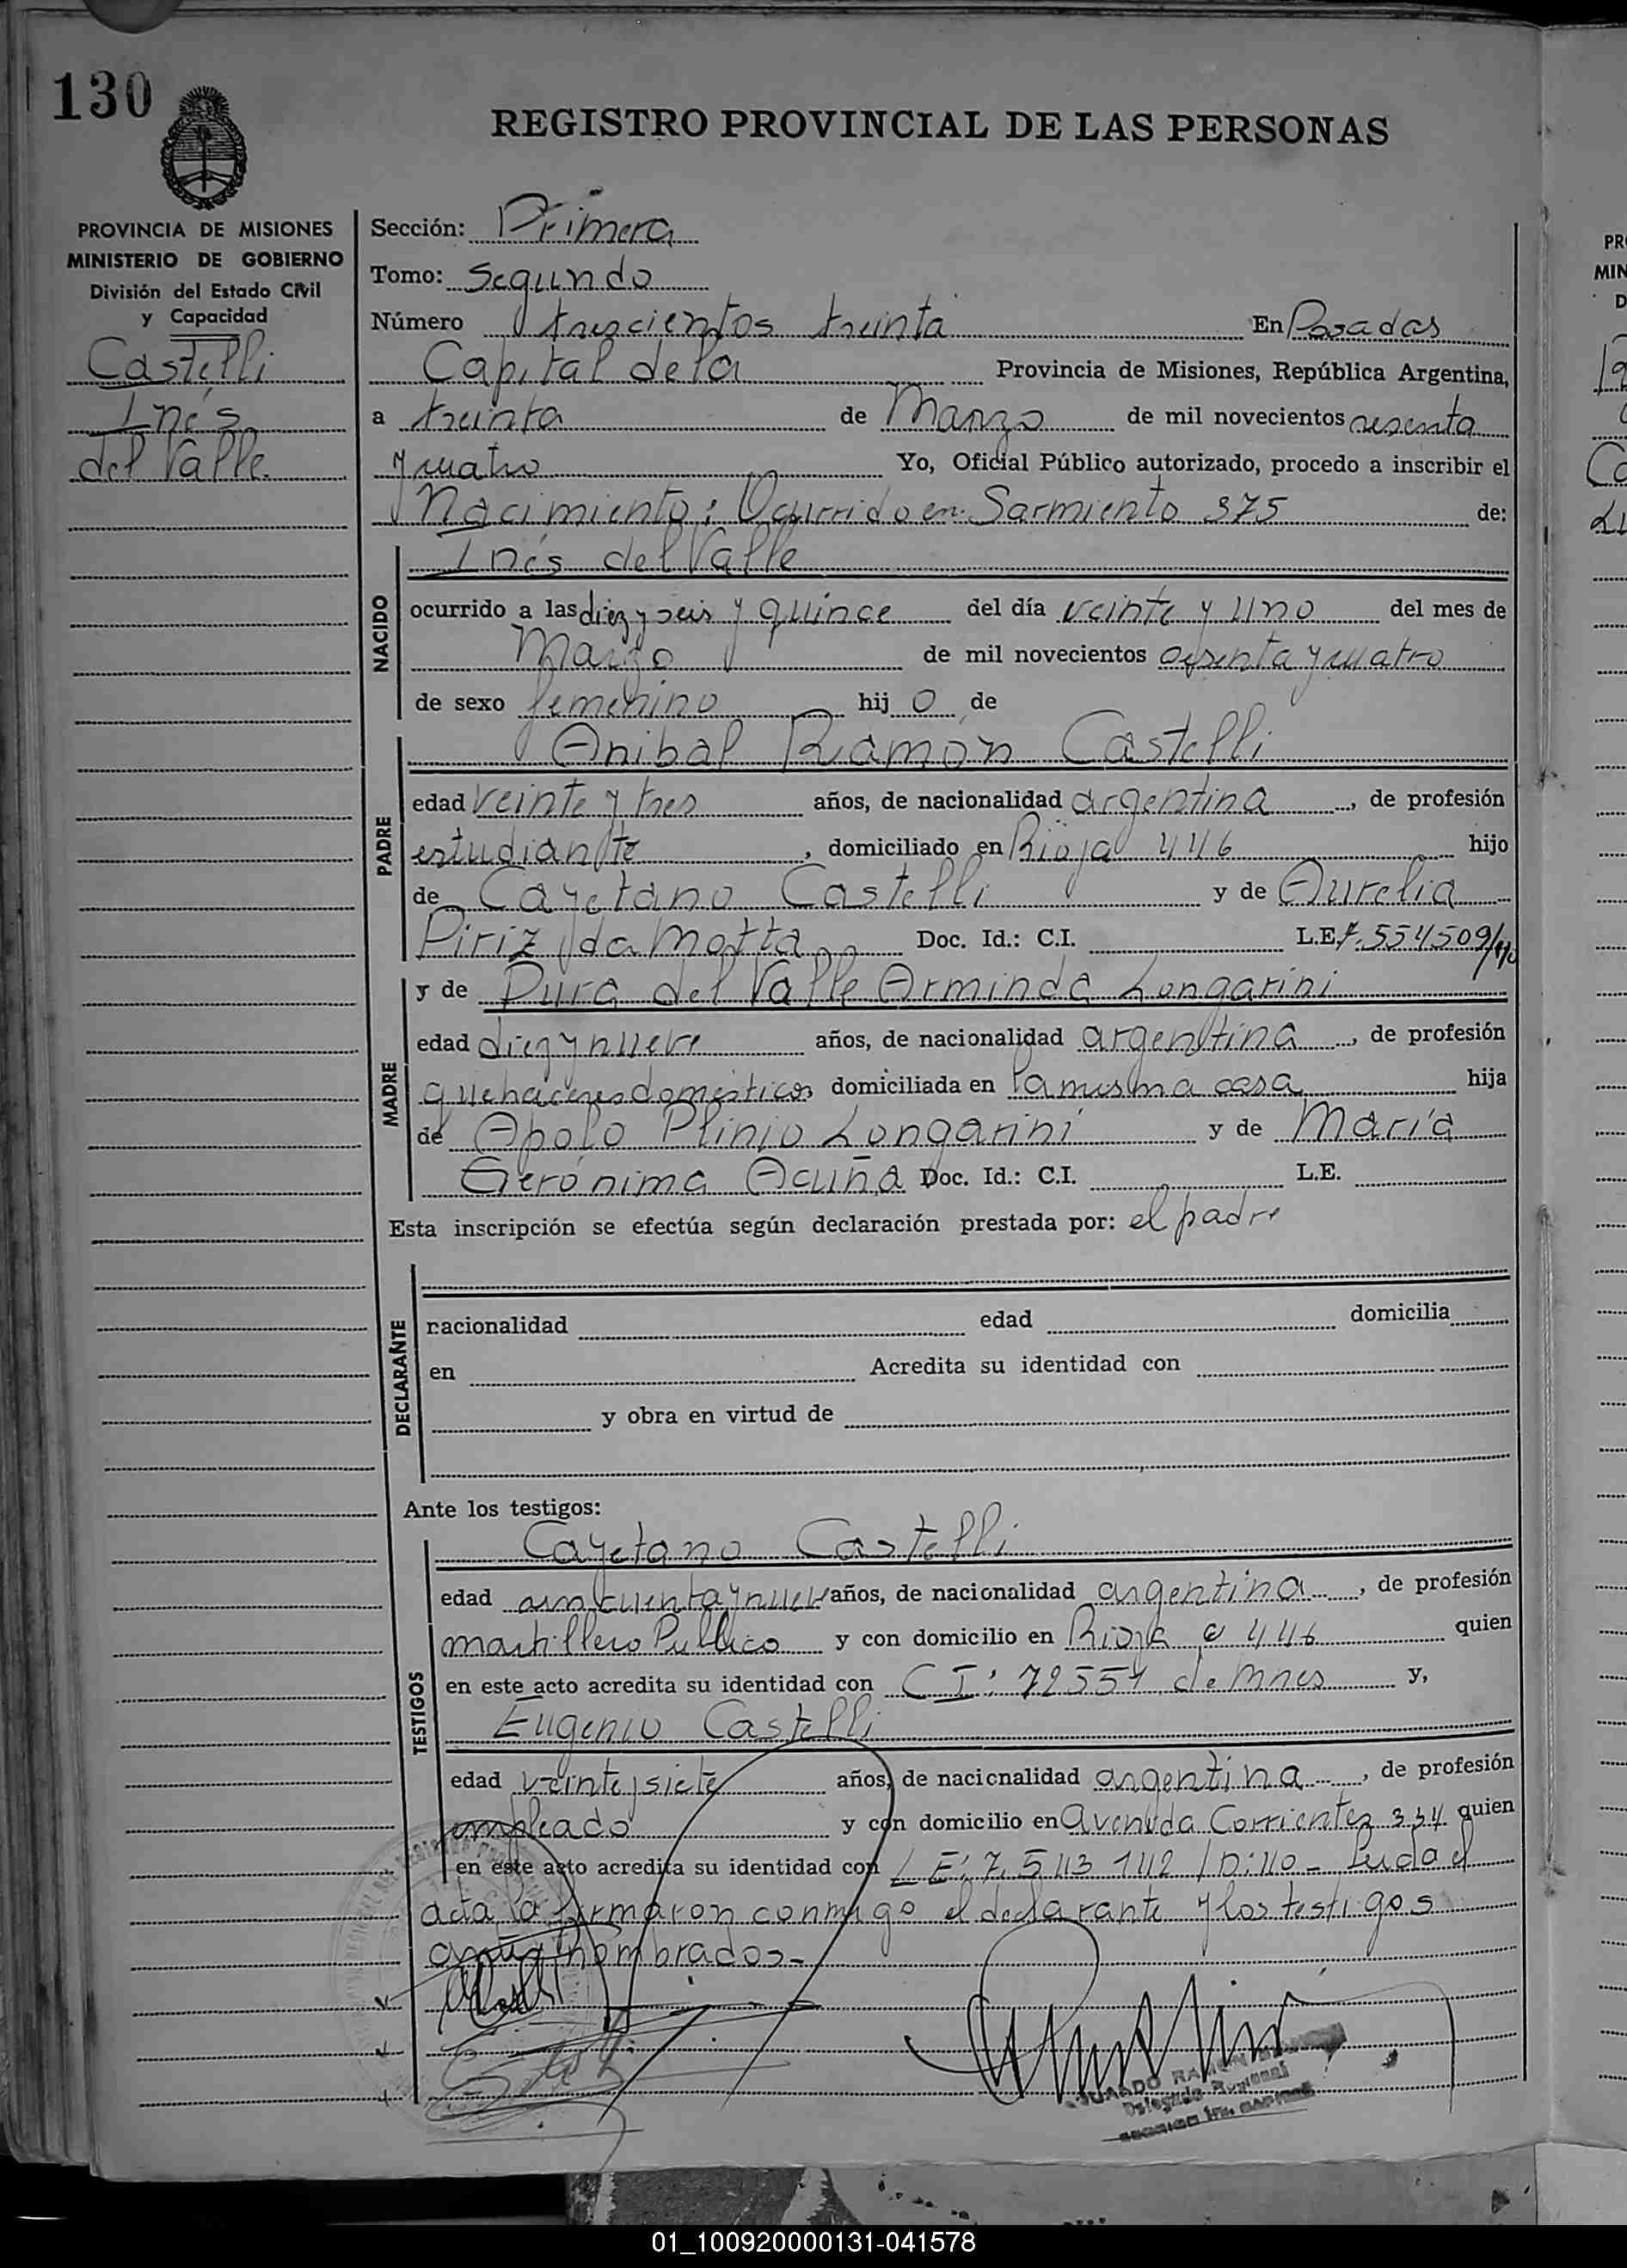 130
REGISTRO PROVINCIAL DE LAS PERSONAS
PROVINCIA DE MISIONES
MINISTERIO DE GOBIERNO
División del Estado Civil
y Capacidad
Castelli
Inés
del Valle
Sección: Primera
Tomo: Segundo
Número trescientos treinta En Posadas
Capital de la Provincia de Misiones, República Argentina,
a treinta de Marzo de mil novecientos sesenta
y cuatro Yo, Oficial Público autorizado, procedo a inscribir el
Nacimiento: Ocurrido en Sarmiento 375 de:
NACIDO
Inés del Valle
ocurrido a las diez y seis y quince del día veinte y uno del mes de
Marzo de mil novecientos sesenta y cuatro
de sexo femenino hij o de
PADRE
Anibal Ramón Castelli
edad veinte y tres años, de nacionalidad argentina, de profesión
estudiante, domiciliado en Rioja 446 hijo
de Cayetano Castelli y de Aurelia
Piriz da Motta Doc. Id.: C.I. L.E. 7.554509
MADRE
y de Pura del Valle Arminda Longarini
edad diez y nueve años, de nacionalidad argentina, de profesión
quehaceres domésticos domiciliada en la misma casa hija
de Apolo Plinio Longarini y de María
Gerónima Acuña Doc. Id.: C.I. L.E.
Esta inscripción se efectúa según declaración prestada por: el padre
DECLARANTE
nacionalidad edad domicilia
en Acredita su identidad con
y obra en virtud de
Ante los testigos:
TESTIGOS
Cayetano Castelli
edad cincuenta y nueve años, de nacionalidad argentina, de profesión
martillero Publico y con domicilio en Rioja 446 quien
en este acto acredita su identidad con C I: 72554 de Mnes y,
Eugenio Castelli
edad veinte y siete años, de nacionalidad argentina, de profesión
empleado y con domicilio en Avenida Corrientes 334 quien
en este acto acredita su identidad con L E: 7.543 142 / D: 40 - Leida el
acta la firmaron conmigo el declarante y los testigos
nombrados-
Delegado Regional
01_100920000131-041578